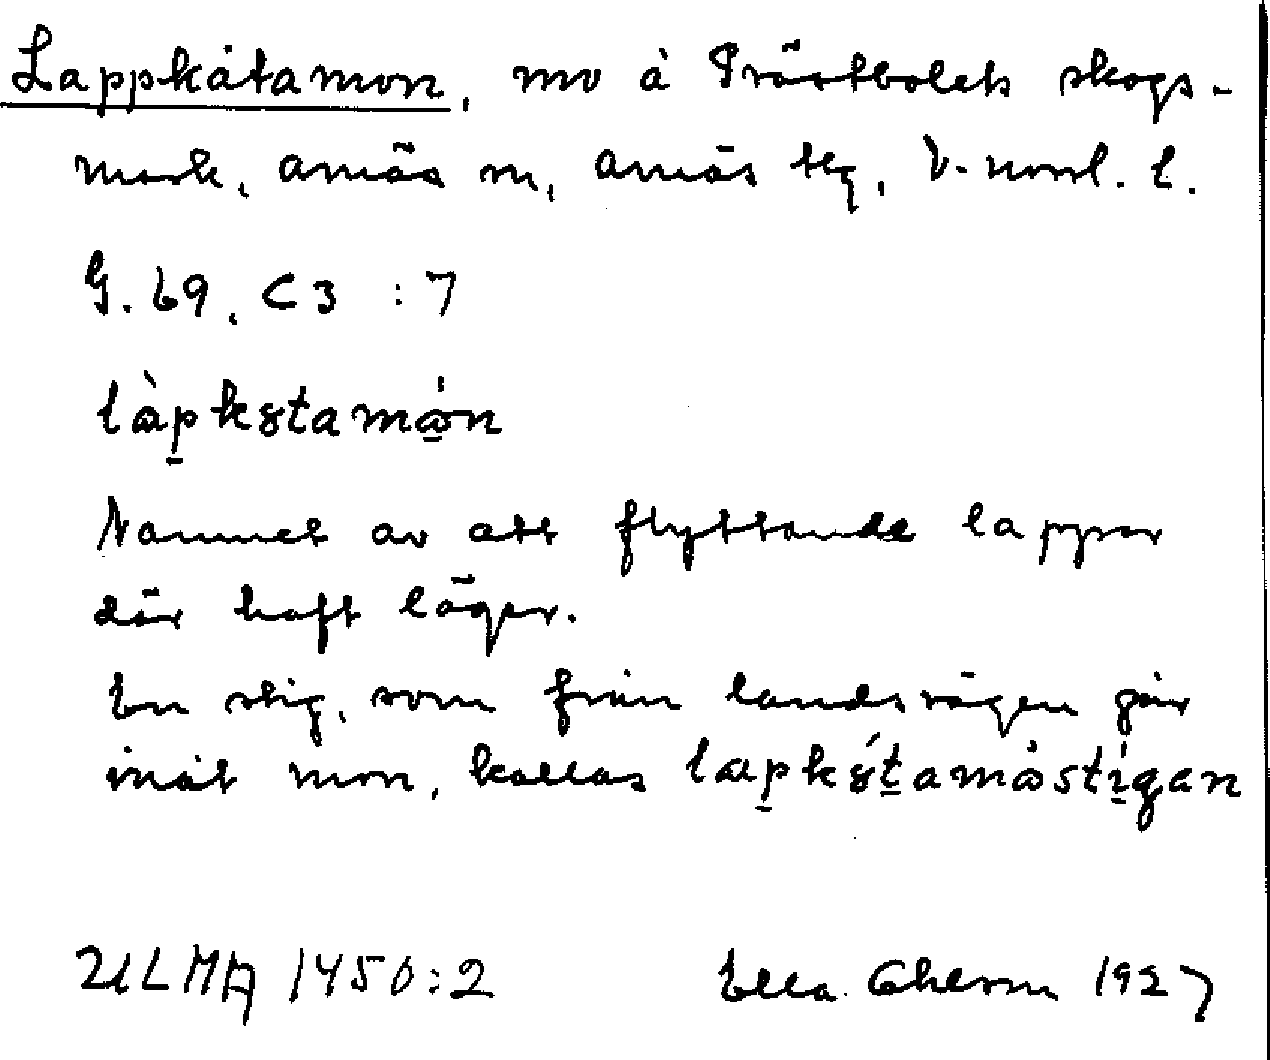 Lappkåtamon, mo å Prästbolets skogs-
mark, Arnäs sn, Arnäs tg, V-norrl. l.
G. 69, C 3 : 7
làpkståmón
Namnet av att flyttande lappar
där haft läger.
En stig, som från landsvägen går
inåt mon, kallas
ULMA 1450:2 Ella Ohlson 1927